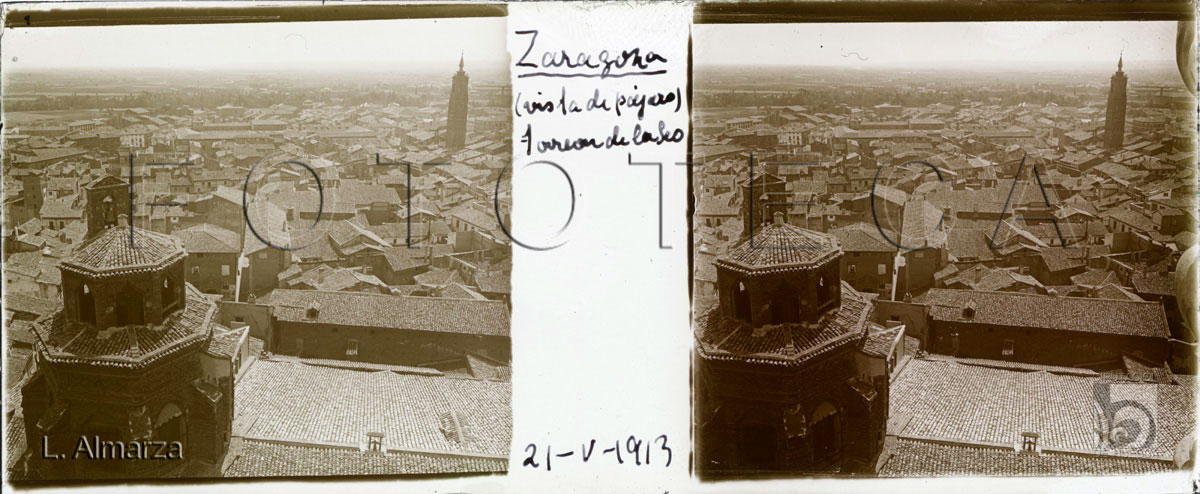 Zaragoza
(vista de pájaro)
torreon de la Seo
21-V-1913
FOTOTECA
L. Almarza